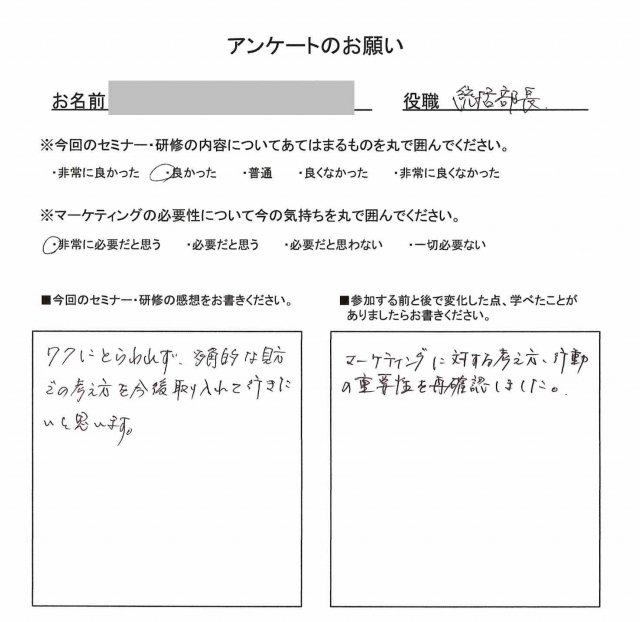 アンケートのお願い
お名前 役職 統括部長.
※今回のセミナー・研修の内容についてあてはまるものを丸で囲んでください。
・非常に良かった ・良かった ・普通 ・良くなかった ・非常に良くなかった
※マーケティングの必要性について今の気持ちを丸で囲んでください。
・非常に必要だと思う ・必要だと思う ・必要だと思わない ・一切必要ない
■今回のセミナー・研修の感想をお書きください。
ワクにとらわれず、多角的な見方
での考え方を今後取り入れて行きた
いと思います。
■参加する前と後で変化した点、学べたことが
ありましたらお書きください。
マーケティングに対する考え方、行動
の重要性を再確認しました。